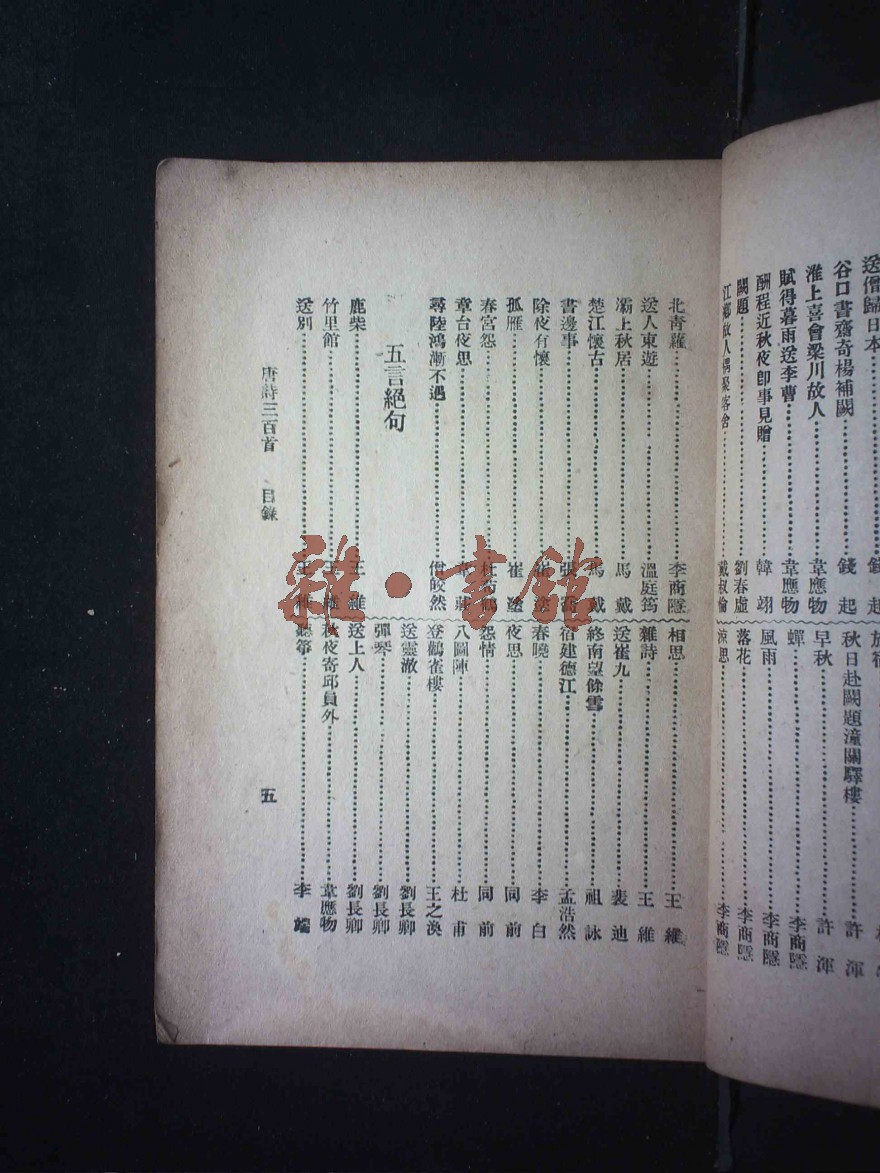 送僧歸日本……錢起
谷口書齋寄楊補闕……錢起
淮上喜會梁川故人……韋應物
賦得暮雨送李曹……韋應物
酬程近秋夜卽事見贈……韓翃
闕題……劉春虛
江鄉故人偶聚客舍……戴叔倫
旅宿
秋日赴闕題潼關驛樓……許渾
早秋……許渾
蟬……李商隱
風雨……李商隱
落花……李商隱
涼思……李商隱
北靑蘿……李商隱
送人東遊……溫庭筠
灞上秋居……馬戴
楚江懷古……馬戴
書邊事……張喬
除夜有懷……崔塗
孤雁……崔塗
春宮怨……杜荀鶴
章台夜思……韋莊
尋陸鴻漸不遇……僧皎然
五言絕句
鹿柴……王維
竹里館……王維
送別……王維
相思……王維
雜詩……王維
送崔九……裴迪
終南望餘雪……祖詠
宿建德江……孟浩然
春曉……李白
夜思……同前
怨情……同前
八圖陣……杜甫
登鸛雀樓……王之渙
送靈澈……劉長卿
彈琴……劉長卿
送上人……劉長卿
秋夜寄邱員外……韋應物
聽箏……李端
唐詩三百首 目錄
五
雜·書館